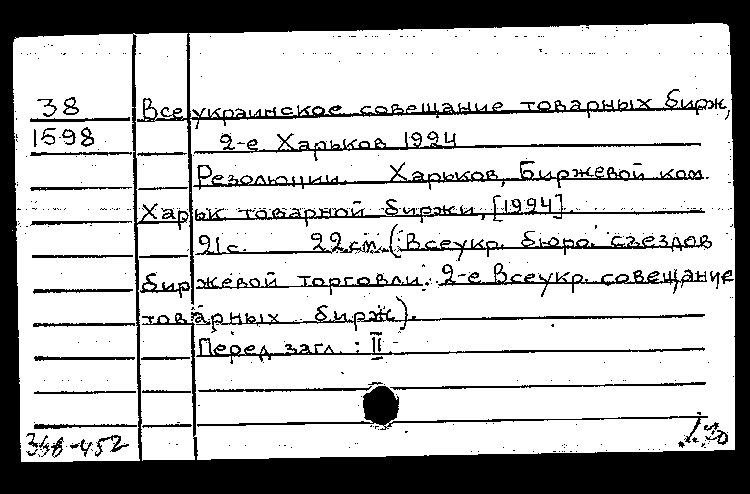 38 Всеукраинское совещание товарных бирж,
1598 2-е Харьков 1924
Резолюции. Харьков, Биржевой ком.
Харьк. товарной биржи, [1924].
21с. 22см. (Всеукр. бюро съездов
биржевой торговли. 2-е Всеукр. совещание
товарных бирж).
Перед загл.: II
368-452